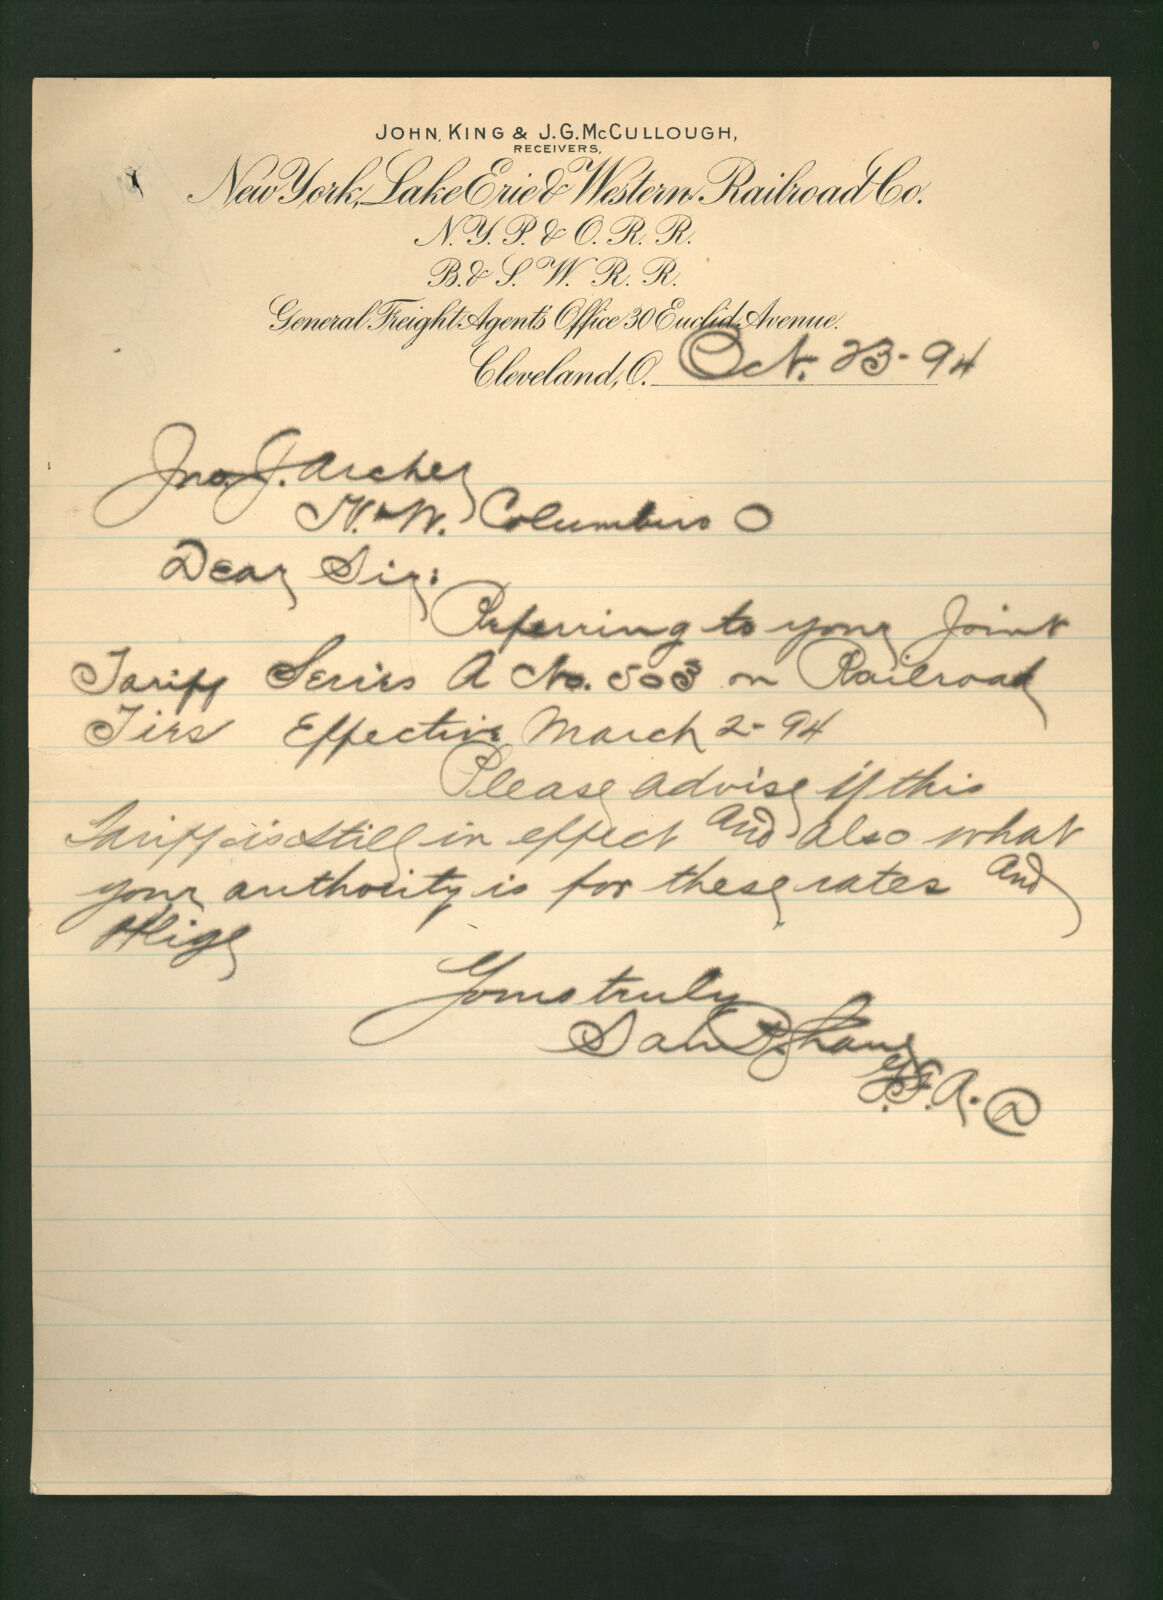 JOHN KING & J.G. McCULLOUGH,
RECEIVERS,
New York, Lake Erie & Western Railroad Co.
N. Y. P. & O. R. R.
B. & S. W. R. R.
General Freight Agent's Office 30 Euclid Avenue.
Cleveland, O. Oct. 23-94
Jno. J. Archer
N. & W. Columbus O
Dear Sir:
Referring to your Joint
Tariff Series A No. 503 on Railroad
Ties Effective March 2-94
Please advise if this
Tariff is still in effect and also what
your authority is for these rates and
Oblige
Yours truly
G.F.A.